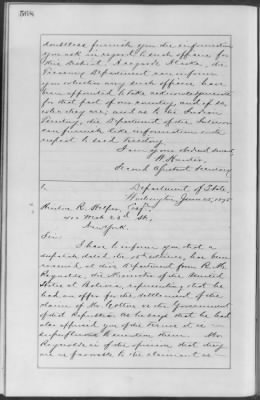 568
doubtless furnish you the information
you ask in regard to such officers for
this District. As regards Alaska, the
Treasury Department can inform
you whether any such officers have
been appointed to take acknowledgments
for that part of our country, and if so,
who they are; and as to the Indian
Territory, the Department of the Interior
can furnish like information with
respect to said Territory.
I am your obedient servant,
W. Hunter,
Second Assistant Secretary.
Department of State,
Washington, June 25, 1875
Hinton R. Helper, Esq.
West 23d St.,
New York.
Sir:
I have to inform you that a
despatch, dated the has been
received at this Department from R. M.
Reynolds, the Minister of the United
States at Bolivia, representing that he
had an offer for the settlement of the
claims of Mr. Colton on the Government
of that Republic. As he says that he had
also apprised you of the terms it is
superfluous to mention them. Mr.
Reynolds is of the opinion that they
are as favorable to the claimant as